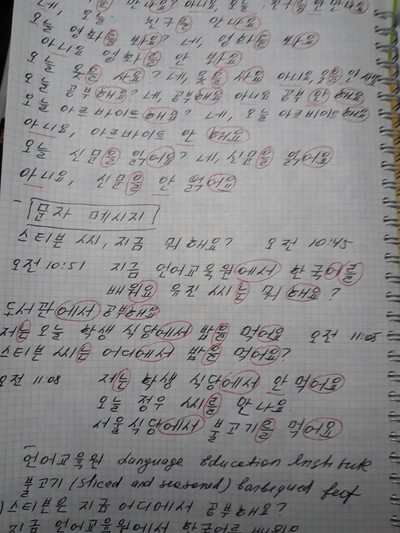 네, 오늘 친구를 만나요
오늘 영화를 봐요? 네, 영화를 봐요
아니요 영화를 안 봐요
오늘 옷을 사요? 네, 옷을 사요 아니요, 옷을 안 사요
오늘 공부해요? 네, 공부해요 아니요 공부 안 해요
오늘 아르바이트 해요? 네, 오늘 아르바이트 해요
아니요, 아르바이트 안 해요
오늘 신문을 읽어요? 네, 신문을 읽어요
아니요, 신문을 안 읽어요
- 문자 메시지
스티븐 씨, 지금 뭐 해요? 오전 10:45
오전 10:51 지금 언어교육원에서 한국어를
배워요 유진 씨는 뭐 해요?
도서관에서 공부해요
저는 오늘 학생 식당에서 밥을 먹어요 오전 11:05
스티븐 씨는 어디에서 밥을 먹어요?
오전 11.08 저는 학생 식당에서 안 먹어요
오늘 정우 씨를 만나요
서울식당에서 불고기를 먹어요
언어교육원 Language Education Institute
불고기 (sliced and seasoned) barbequed beef
스티븐은 지금 어디에서 공부해요?
지금 언어교육원에서 한국어를 배워요